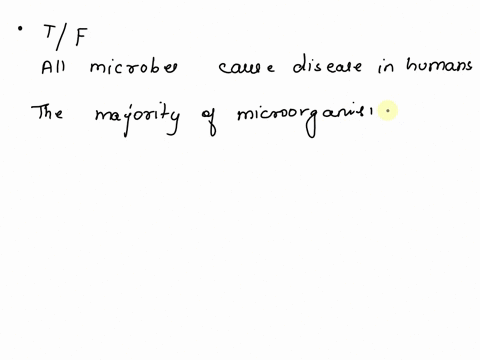 • T/F
All microbes cause disease in humans
The majority of microorganis